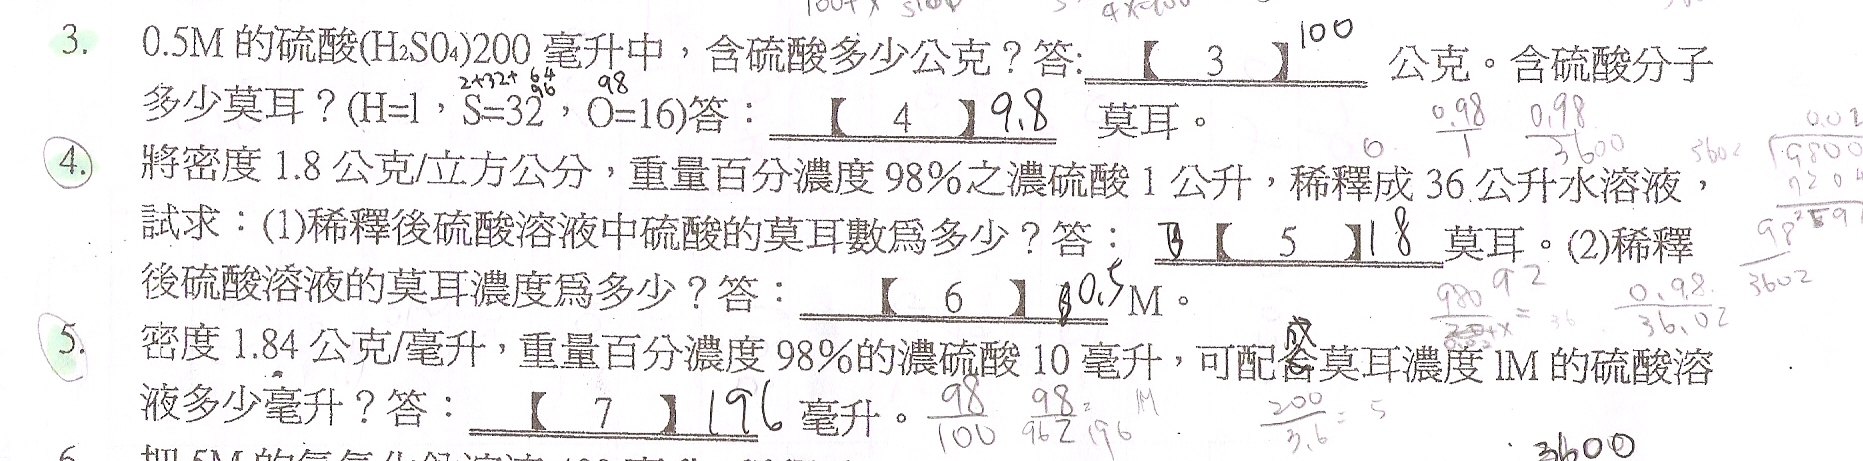 3. 0.5M 的硫酸(H₂SO₄)200 毫升中，含硫酸多少公克？答:【 3 】100 公克。含硫酸分子
2+32+64 96 98
多少莫耳？(H=1，S=32，O=16)答：【 4 】9.8 莫耳。
0.98/1 0.98/3600
4. 將密度 1.8 公克/立方公分，重量百分濃度 98%之濃硫酸 1 公升，稀釋成 36 公升水溶液，
試求：(1)稀釋後硫酸溶液中硫酸的莫耳數爲多少？答：【 5 】18 莫耳。(2)稀釋
98/3602
後硫酸溶液的莫耳濃度爲多少？答：【 6 】0.5 M。
980 92 0.98/36.02
5. 密度 1.84 公克/毫升，重量百分濃度 98%的濃硫酸 10 毫升，可配成莫耳濃度 1M 的硫酸溶
液多少毫升？答：【 7 】196 毫升。98/100 98/962 196 1M 200/3.6= 5
3600